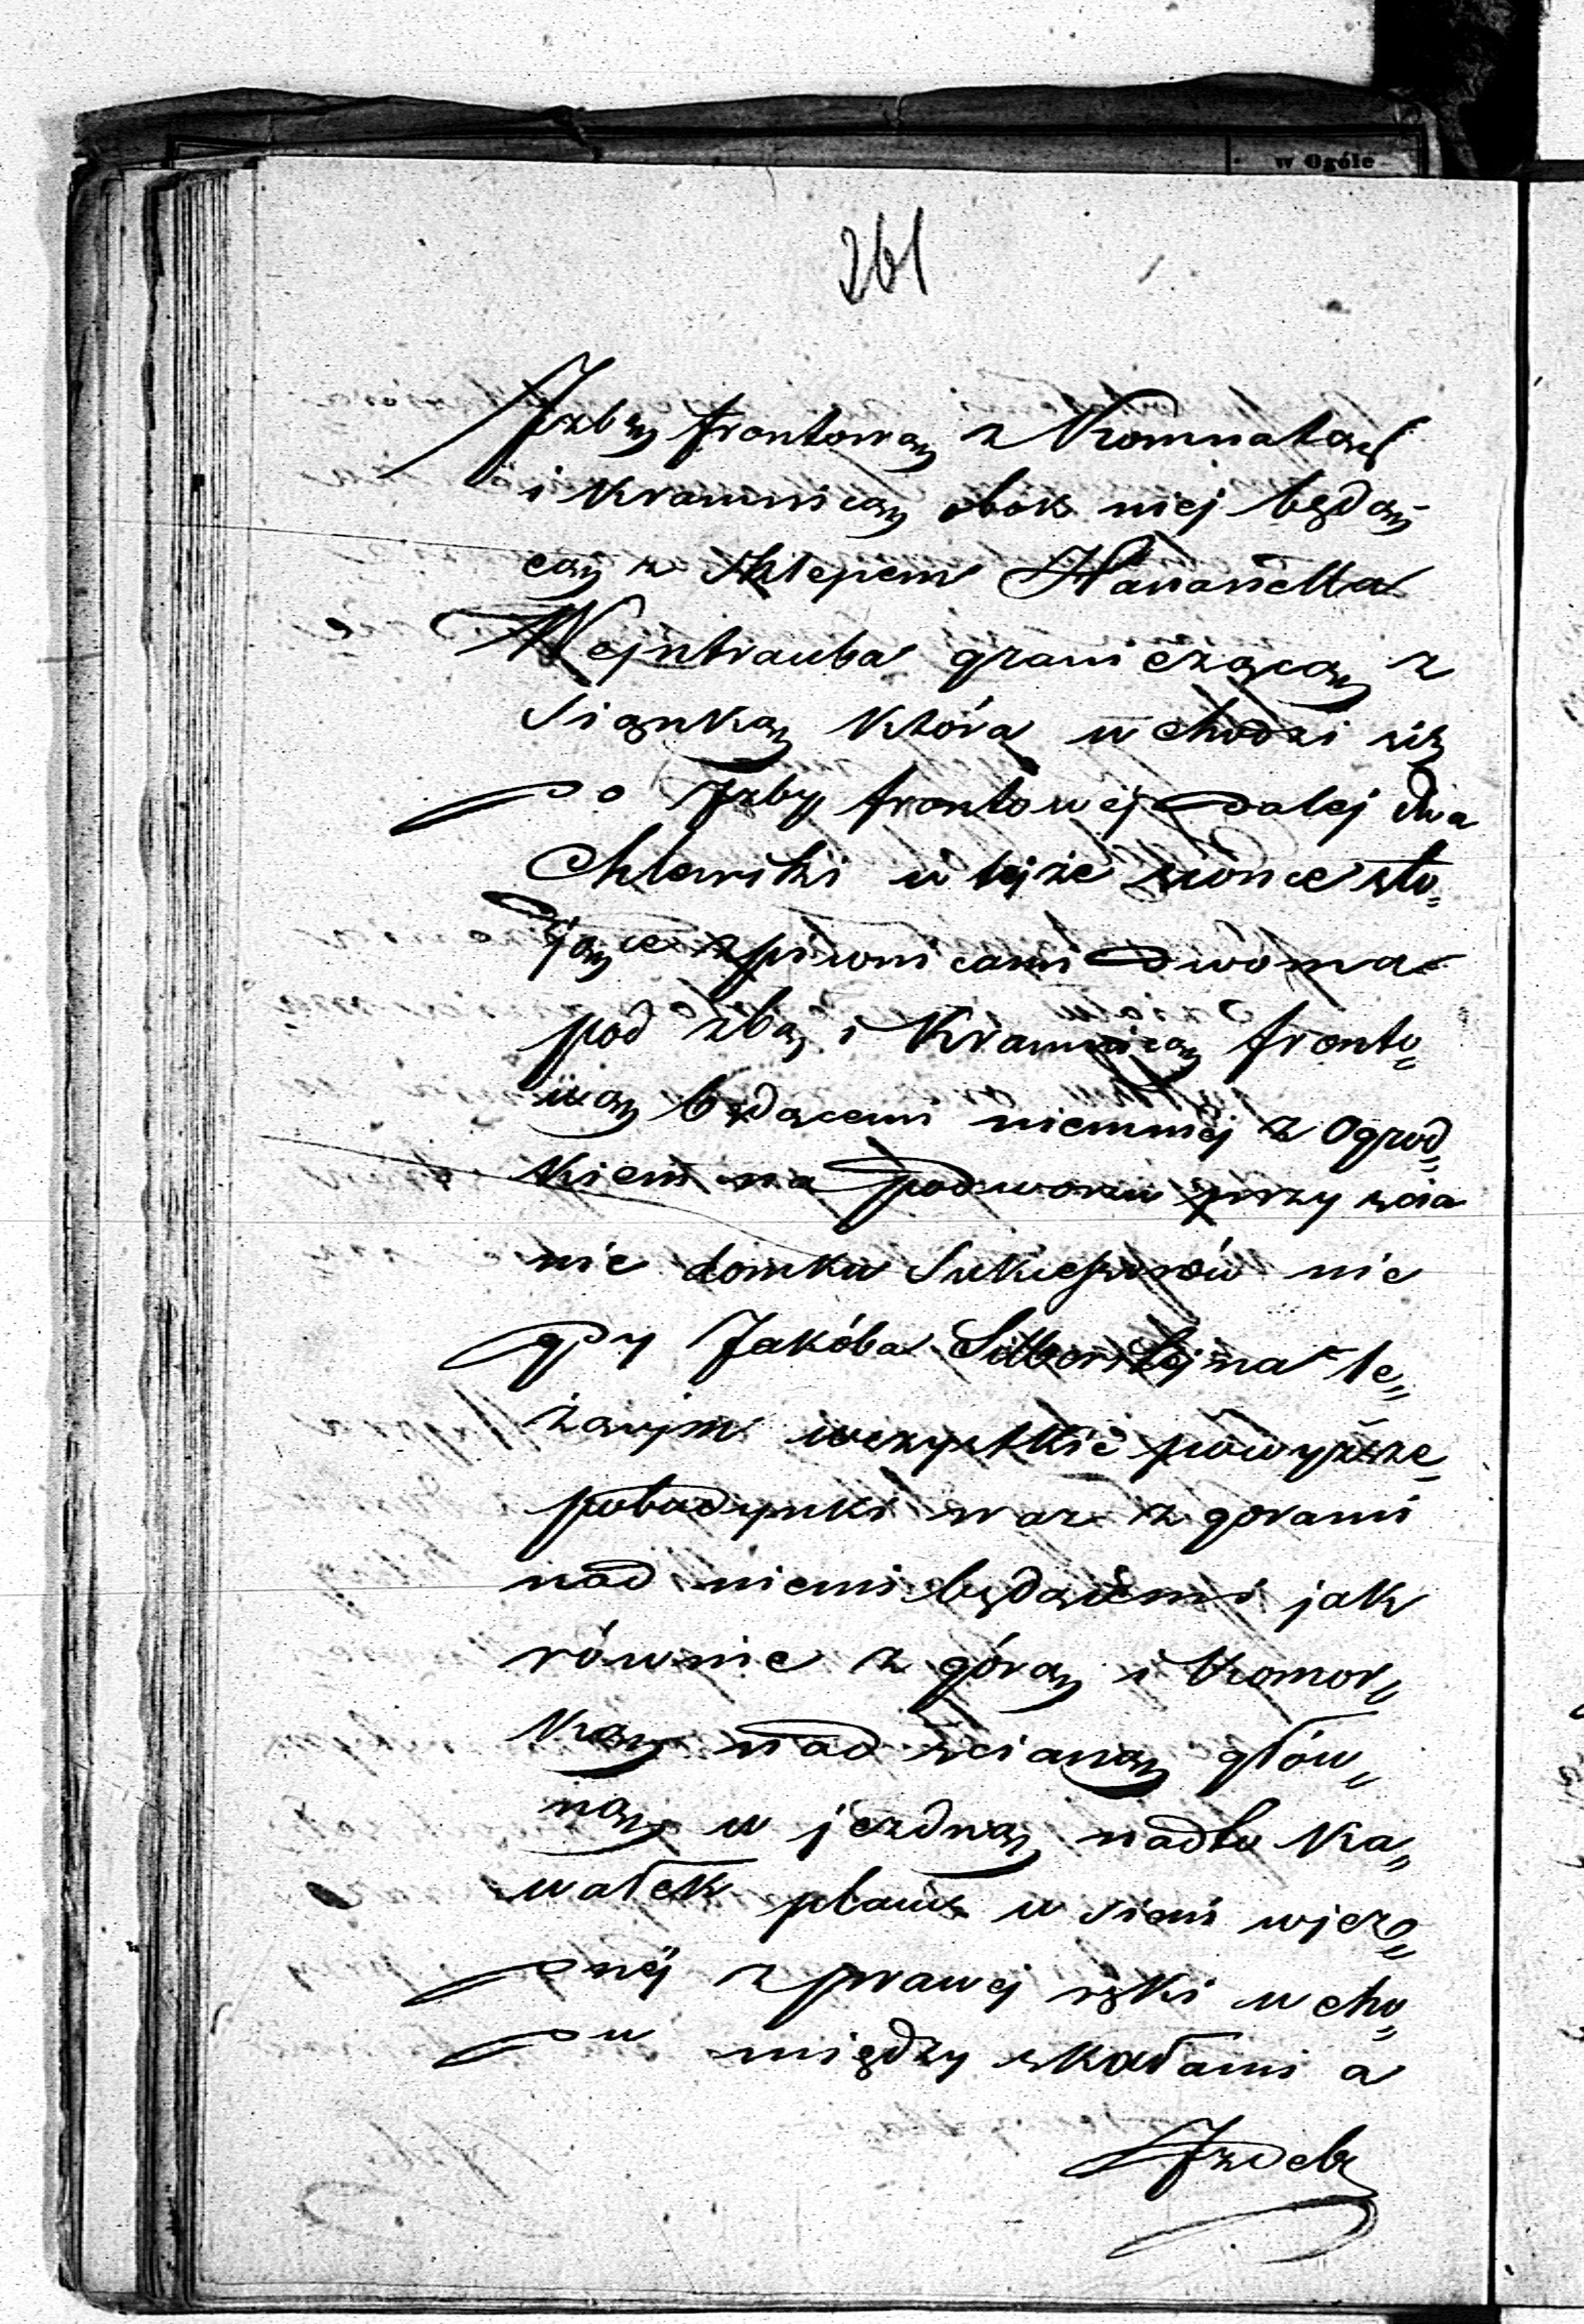 w Ogóle
261
Izbę frontową z Komnatą
i kramnicą obok niej będą-
cą z sklepem
Wejntrauba graniczącą z
sionką którą wchodzi się
do Izby frontowej dalej dwa
Chlewiki w tejże sionce sto„
jące z piwnicami dwoma
pod izbą i Kramnicą fronto„
wą będącemi niemniej z Ogród„
kiem na podworzu przy scia
nie domku Sukcessorów nie
gdy Jakóba Silbersztejna le„
żącym wszystkie powyższe
pobudynki wraz z gorami
nad niemi będącemi jak
równie z górą i komor„
ką nad scianą głów„
ną wjezdną nadto Ka„
wałek placu w sieni wjez„
dnéj z prawej ręki wcho„
du między skałami a
Izdeb